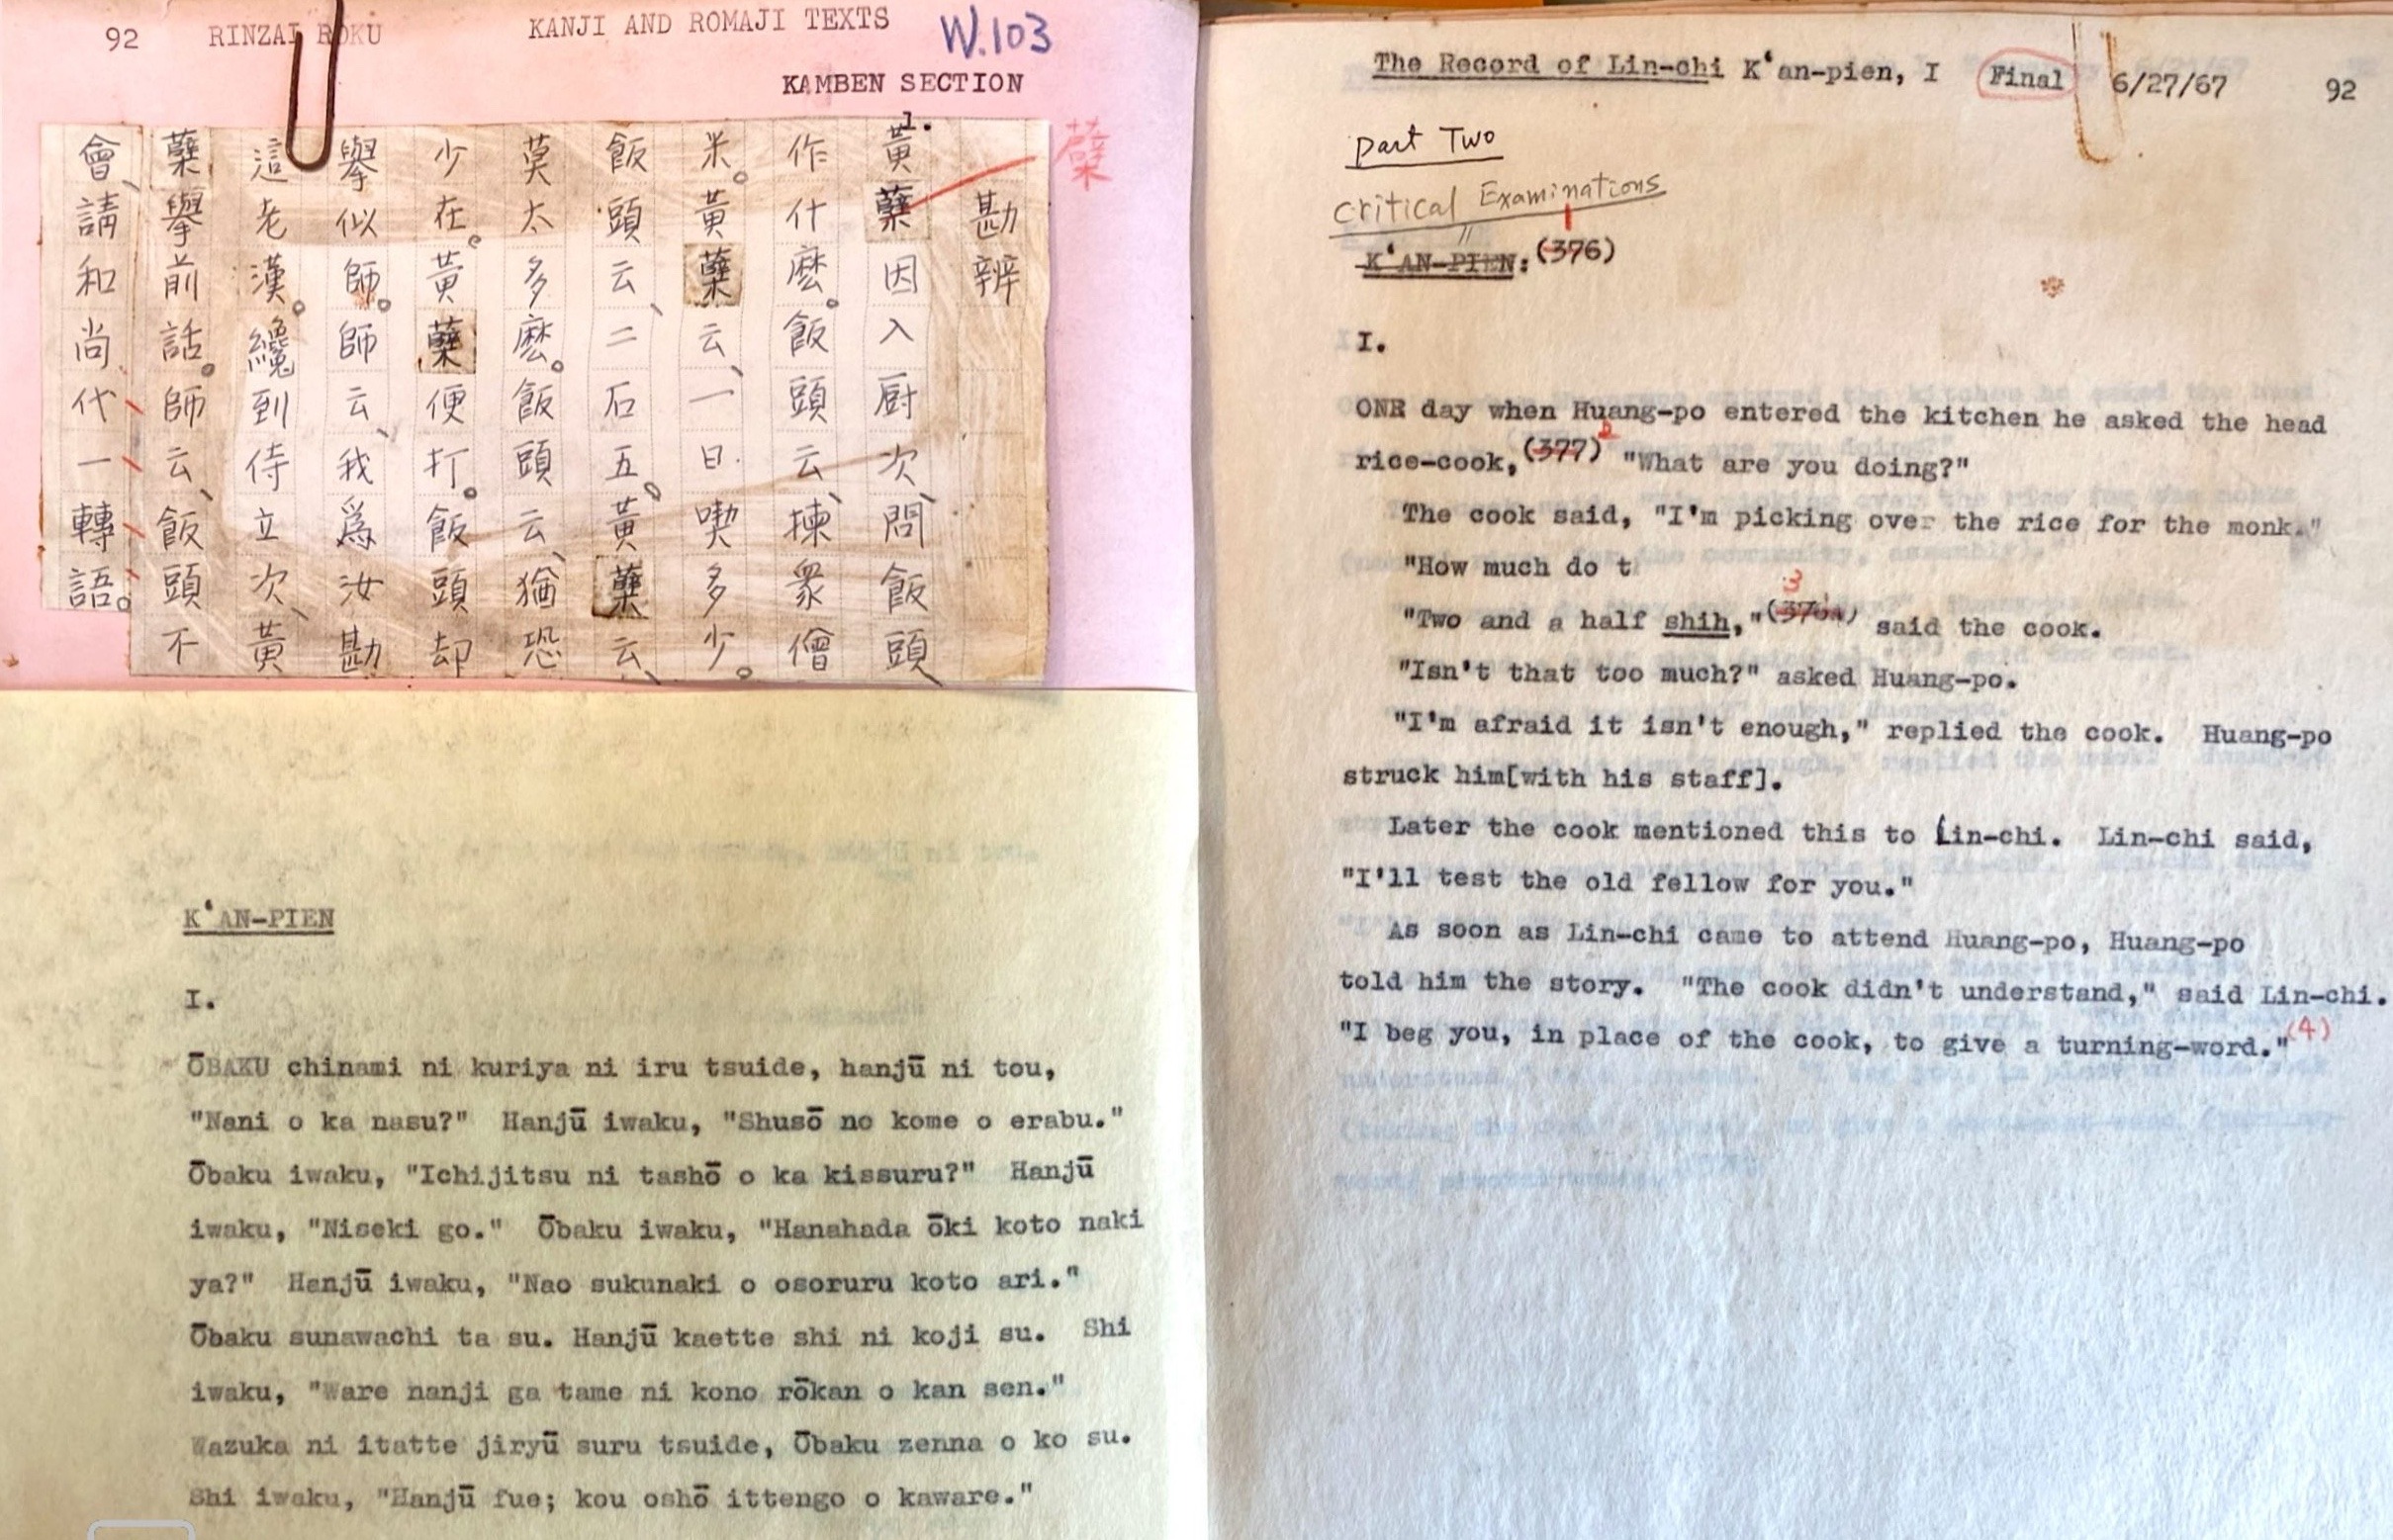 92 RINZAI ROKU KANJI AND ROMAJI TEXTS W.103
KAMBEN SECTION
1.
蘗
勘辨
黃蘗因入厨次、問飯頭、
作什麽。飯頭云、揀衆僧
米。黃蘗云、一日喫多少。
飯頭云、二石五。黃蘗云、
莫太多麽。飯頭云、猶恐
少在。黃蘗便打。飯頭却
擧似師。師云、我爲汝勘
這老漢。纔到侍立次、黃
蘗擧前話。師云、飯頭不
會、請和尚代一轉語。
K'AN-PIEN
I.
ŌBAKU chinami ni kuriya ni iru tsuide, hanjū ni tou,
"Nani o ka nasu?" Hanjū iwaku, "Shusō no kome o erabu."
Ōbaku iwaku, "Ichijitsu ni tashō o ka kissuru?" Hanjū
iwaku, "Niseki go." Ōbaku iwaku, "Hanahada ōki koto naki
ya?" Hanjū iwaku, "Nao sukunaki o osoruru koto ari."
Ōbaku sunawachi ta su. Hanjū kaette shi ni koji su. Shi
iwaku, "Ware nanji ga tame ni kono rōkan o kan sen."
Wazuka ni itatte jiryū suru tsuide, Ōbaku zenna o ko su.
Shi iwaku, "Hanjū fue; kou oshō ittengo o kaware."
The Record of Lin-chi K'an-pien, I Final 6/27/67 92
Part Two
Critical Examinations
K'AN-PIEN: (376) 1
I.
ONE day when Huang-po entered the kitchen he asked the head
rice-cook,(377) "What are you doing?"
The cook said, "I'm picking over the rice for the monk."
"How much do t
3
"Two and a half shih," said the cook.
"Isn't that too much?" asked Huang-po.
"I'm afraid it isn't enough," replied the cook. Huang-po
struck him[with his staff].
Later the cook mentioned this to Lin-chi. Lin-chi said,
"I'll test the old fellow for you."
As soon as Lin-chi came to attend Huang-po, Huang-po
told him the story. "The cook didn't understand," said Lin-chi.
"I beg you, in place of the cook, to give a turning-word."(4)